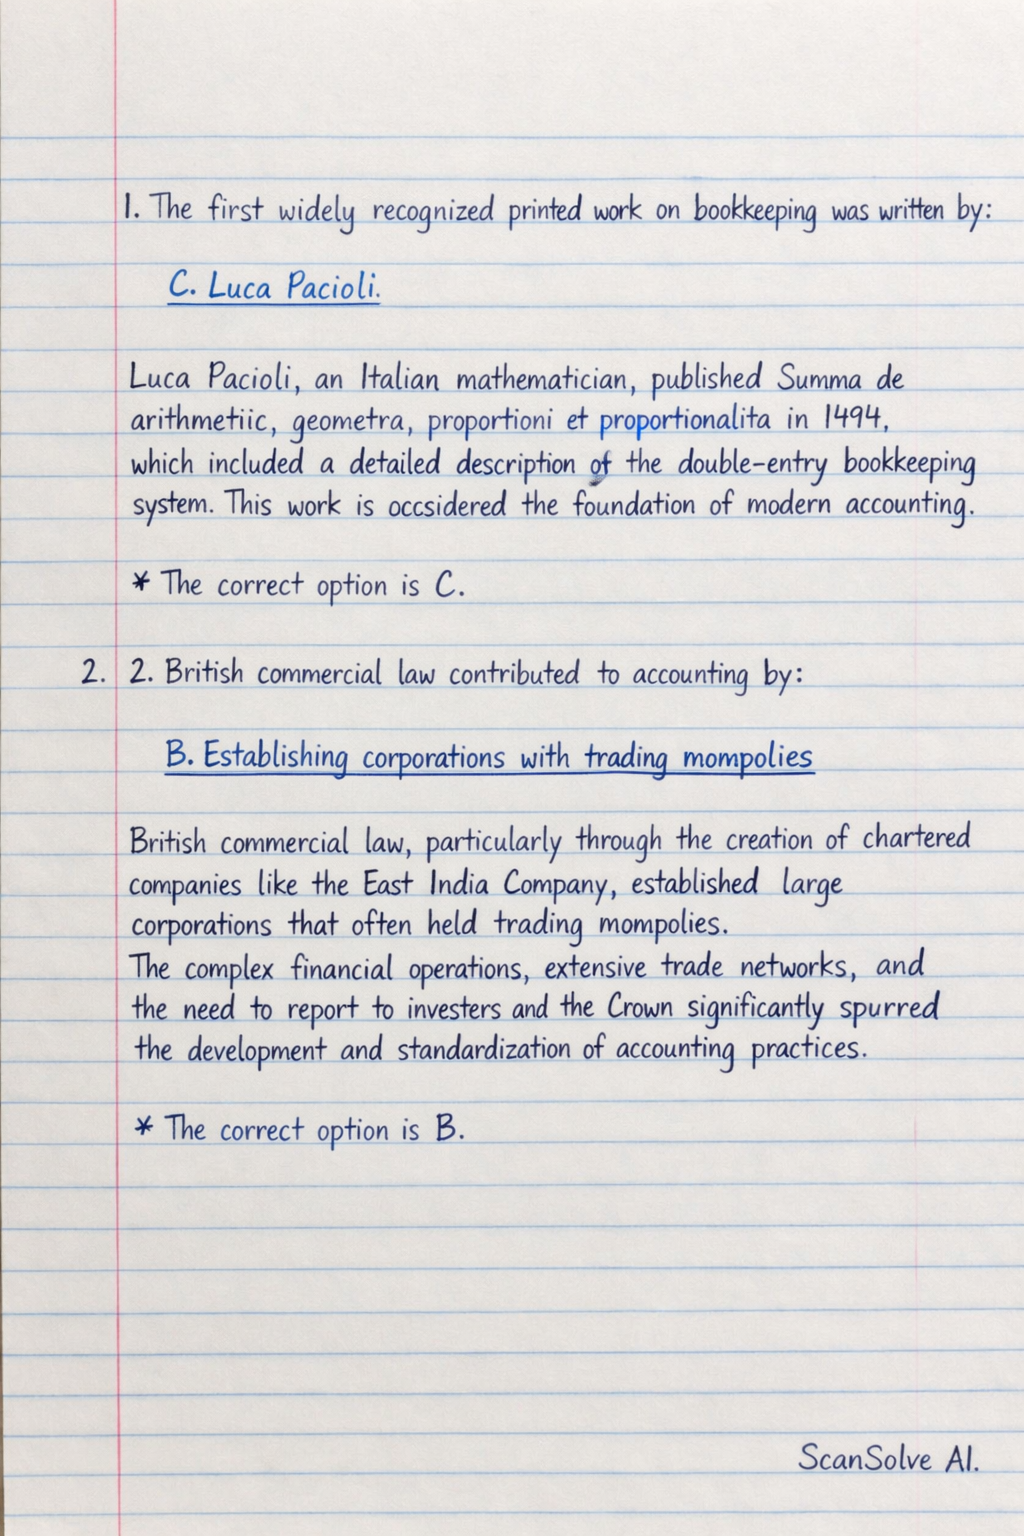 1. The first widely recognized printed work on bookkeeping was written by:
C. Luca Pacioli.
Luca Pacioli, an Italian mathematician, published Summa de
arithmetiic, geometra, proportioni et proportionalita in 1494,
which included a detailed description of the double-entry bookkeeping
system. This work is occsidered the foundation of modern accounting.
* The correct option is C.
2. 2. British commercial law contributed to accounting by:
B. Establishing corporations with trading mompolies
British commercial law, particularly through the creation of chartered
companies like the East India Company, established large
corporations that often held trading mompolies.
The complex financial operations, extensive trade networks, and
the need to report to investers and the Crown significantly spurred
the development and standardization of accounting practices.
* The correct option is B.
ScanSolve AI.